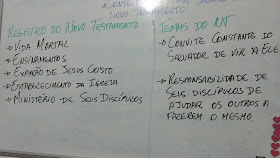 NOVO TESTAMENTO
REGISTRO DO NOVO TESTAMENTO
→ VIDA MORTAL
→ ENSINAMENTOS
→ EXPIAÇÃO DE JESUS CRISTO
→ ESTABELECIMENTO DA IGREJA
→ MINISTÉRIO DE SEUS DISCÍPULOS
TEMAS DO NT
→ CONVITE CONSTANTE DO
SALVADOR DE VIR A ELE
→ RESPONSABILIDADE DE
SEUS DISCÍPULOS DE
AJUDAR OS OUTROS A
FAZEREM O MESMO.